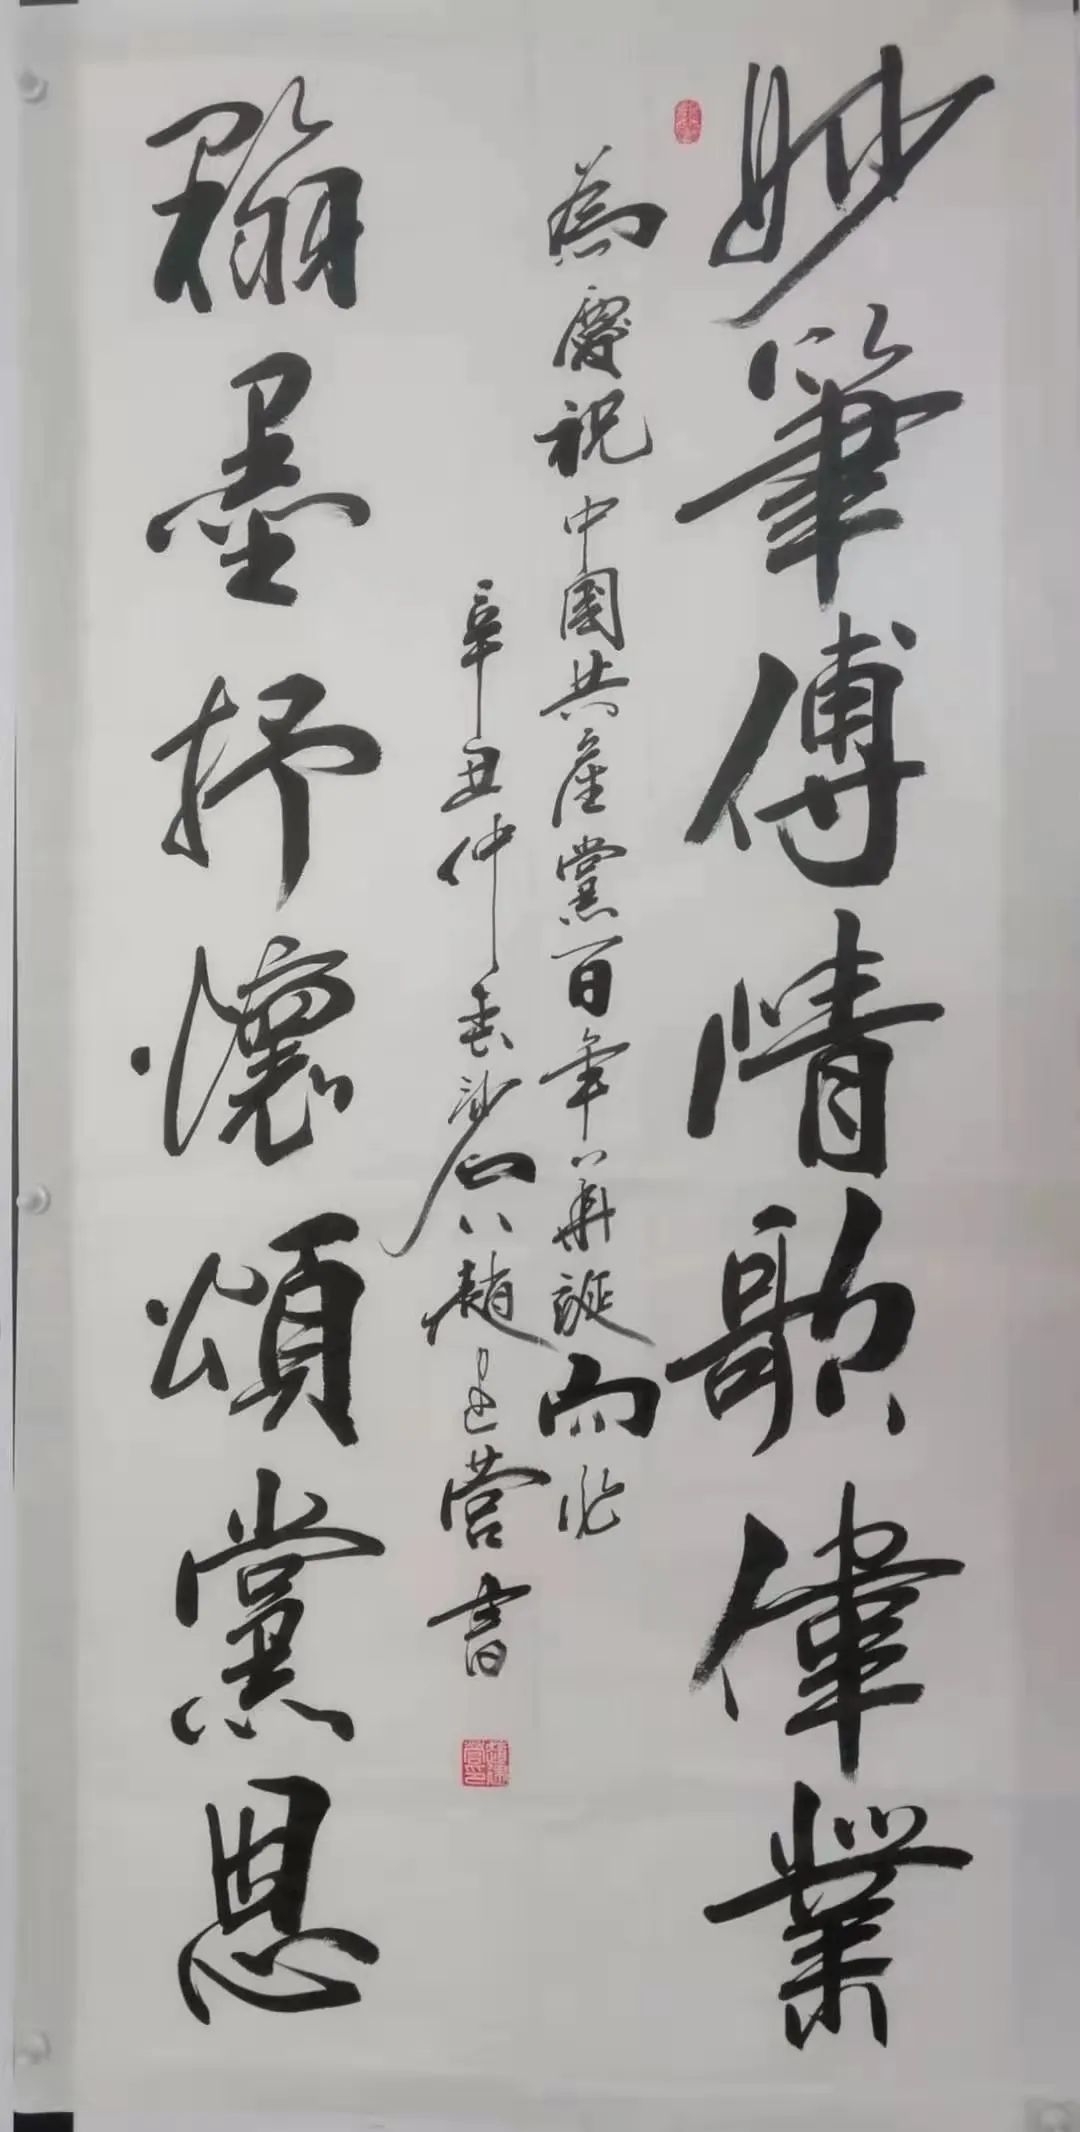 妙筆傳情歌偉業
為慶祝中國共産黨百年華誕而作
辛丑仲春趙建營書
翰墨抒懷頌黨恩